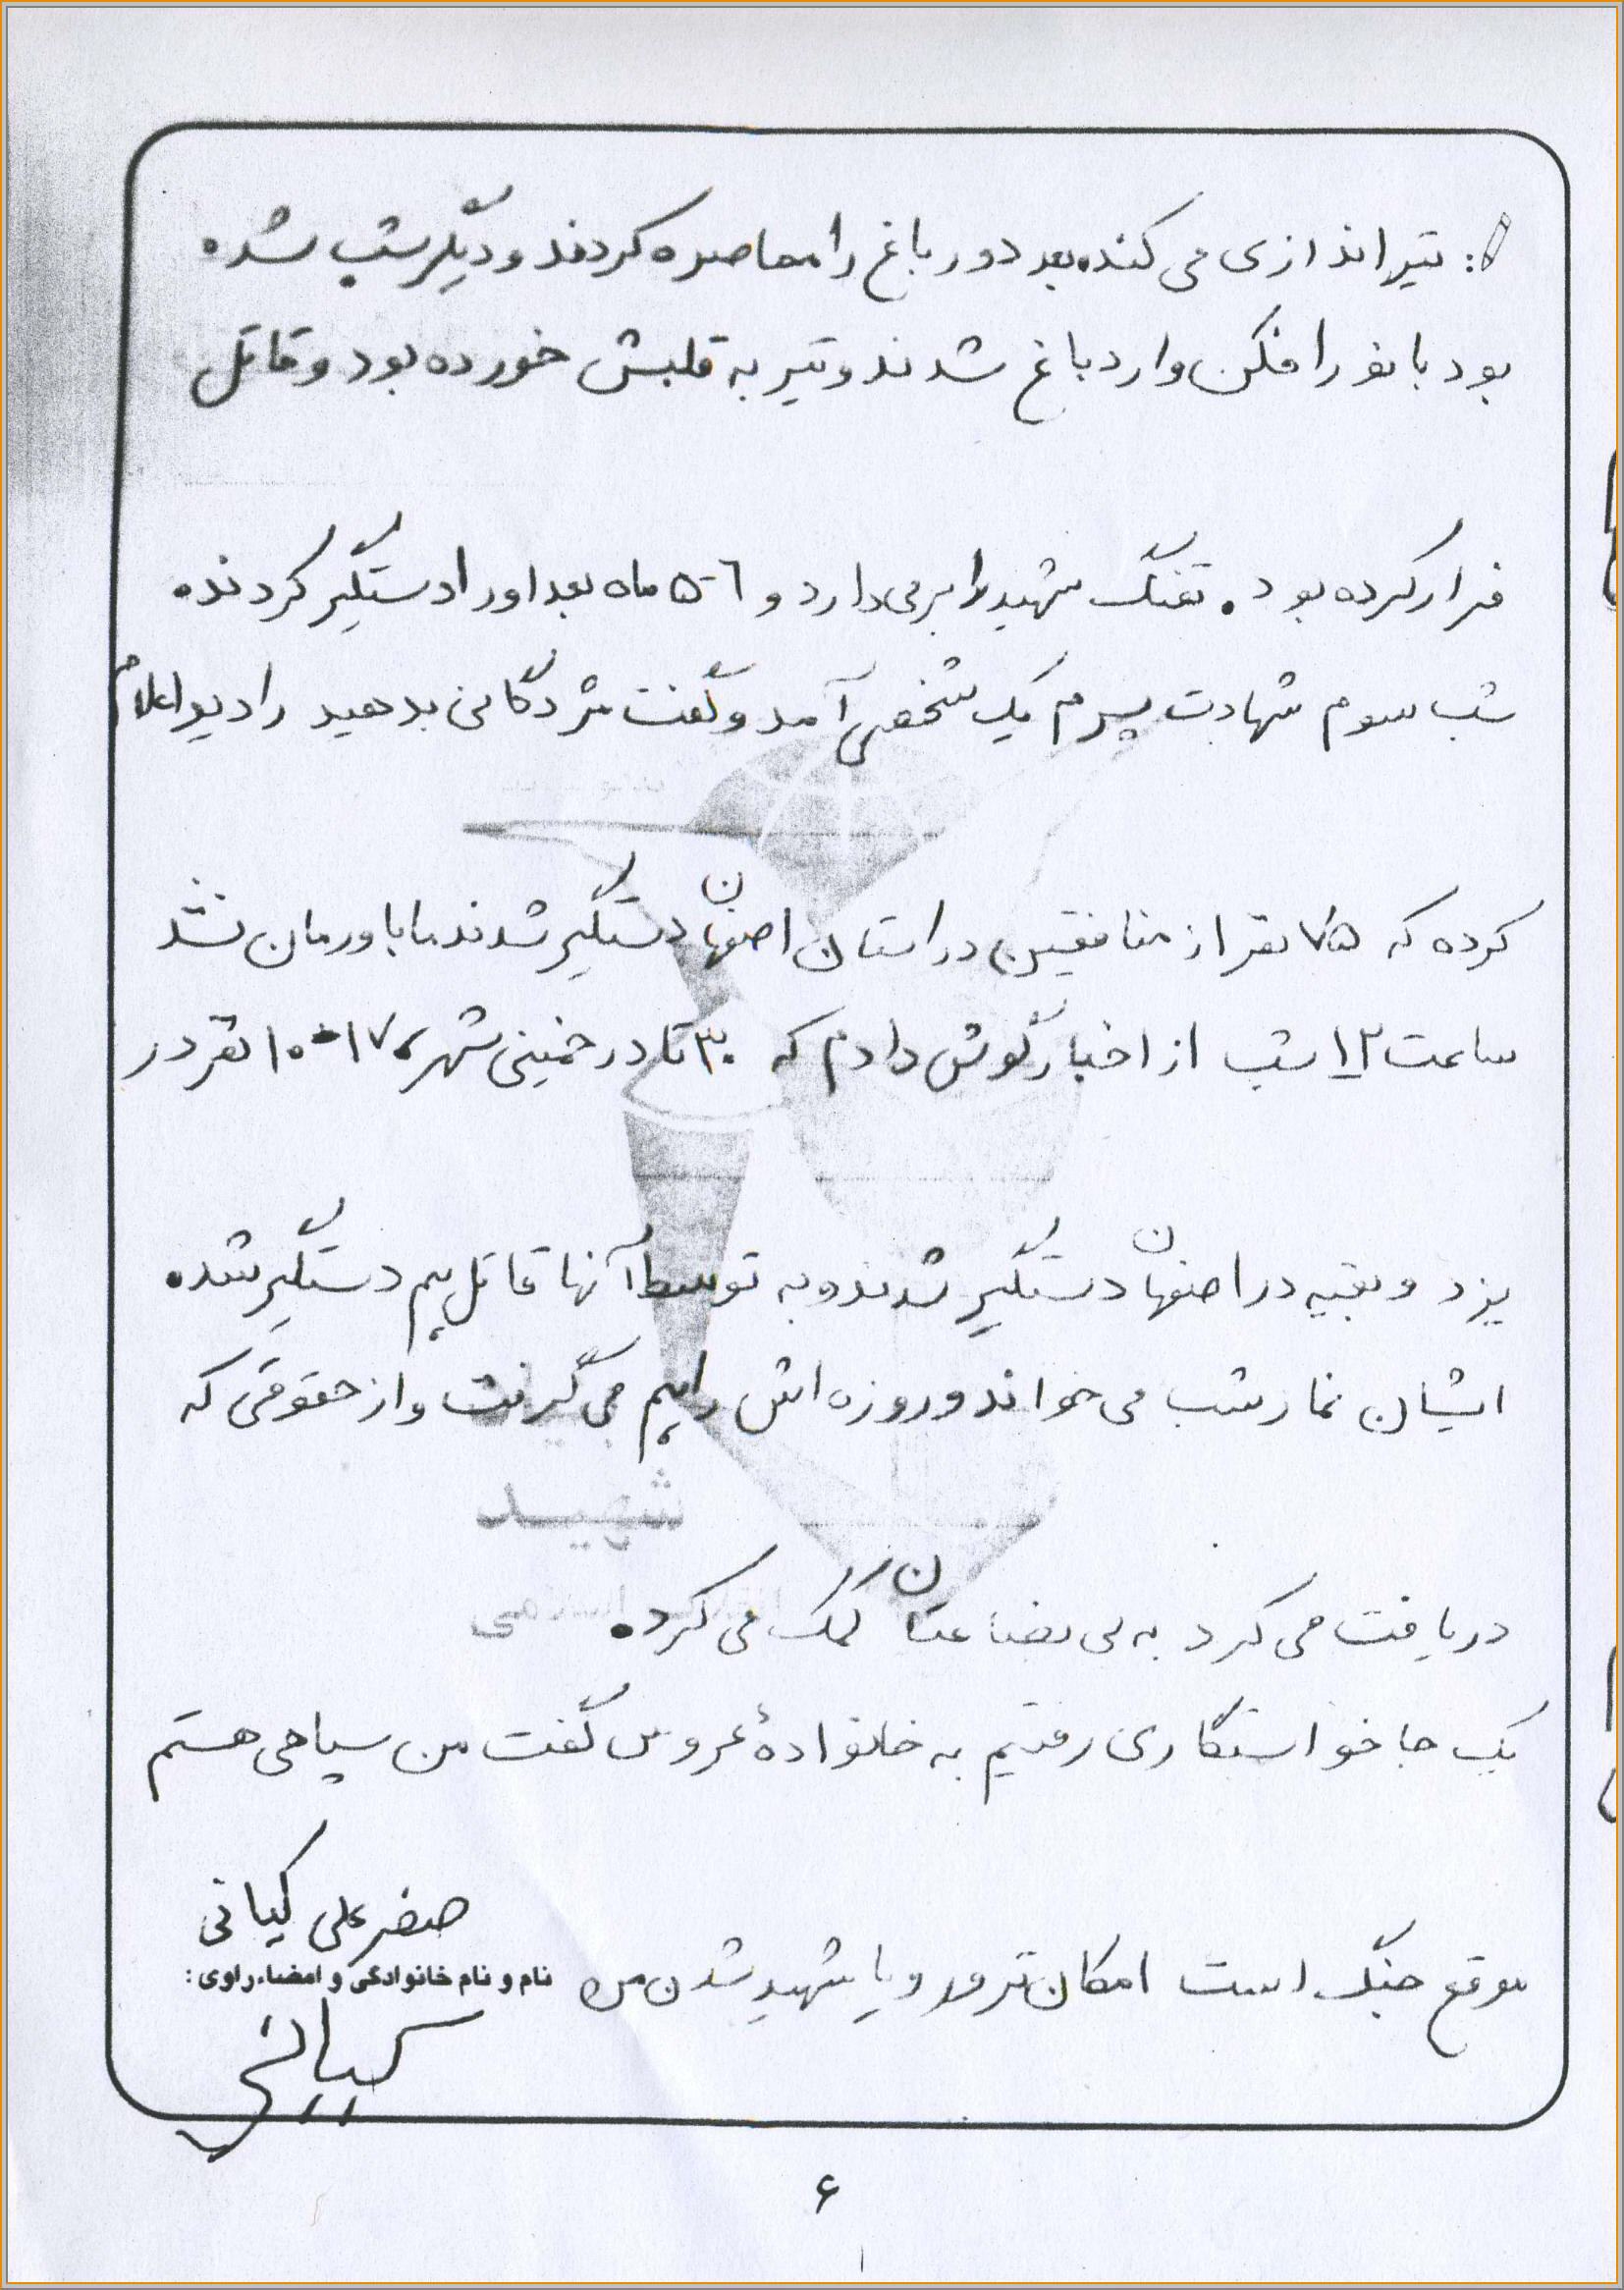 : تیراندازی می کند. بعد دور باغ را محاصره کردند و دیگر شب شده
بود با نورافکن وارد باغ شدند و تیر به قلبش خورده بود و قاتل
فرار کرده بود. تفنگ شهید را برمی دارد و ۶-۵ ماه بعد او را دستگیر کردند.
شب سوم شهادت پسرم یک شخصی آمد و گفت مژدگانی بدهید رادیو اعلام
کرده که ۷۵ نفر از منافقین در استان اصفهان دستگیر شدند ما باورمان نشد
ساعت ۱۲ شب از اخبار گوش دادم که ۳۰ تا در خمینی شهر، ۱۷ نفر در
یزد و بقیه در اصفهان دستگیر شدند و به توسط آنها قاتل هم دستگیر شد.
ایشان نماز شب می خواند و روزه اش را هم می گرفت و از حقوقی که
دریافت می کرد به بی بضاعتان کمک می کرد.
یک جا خواستگاری رفتیم به خانوادهٔ عروس گفت من سپاهی هستم
موقع جنگ است امکان ترور و یا شهید شدن من
صفرعلی کیانی
نام و نام خانوادگی و امضاء راوی:
کیانی
شهید
۶